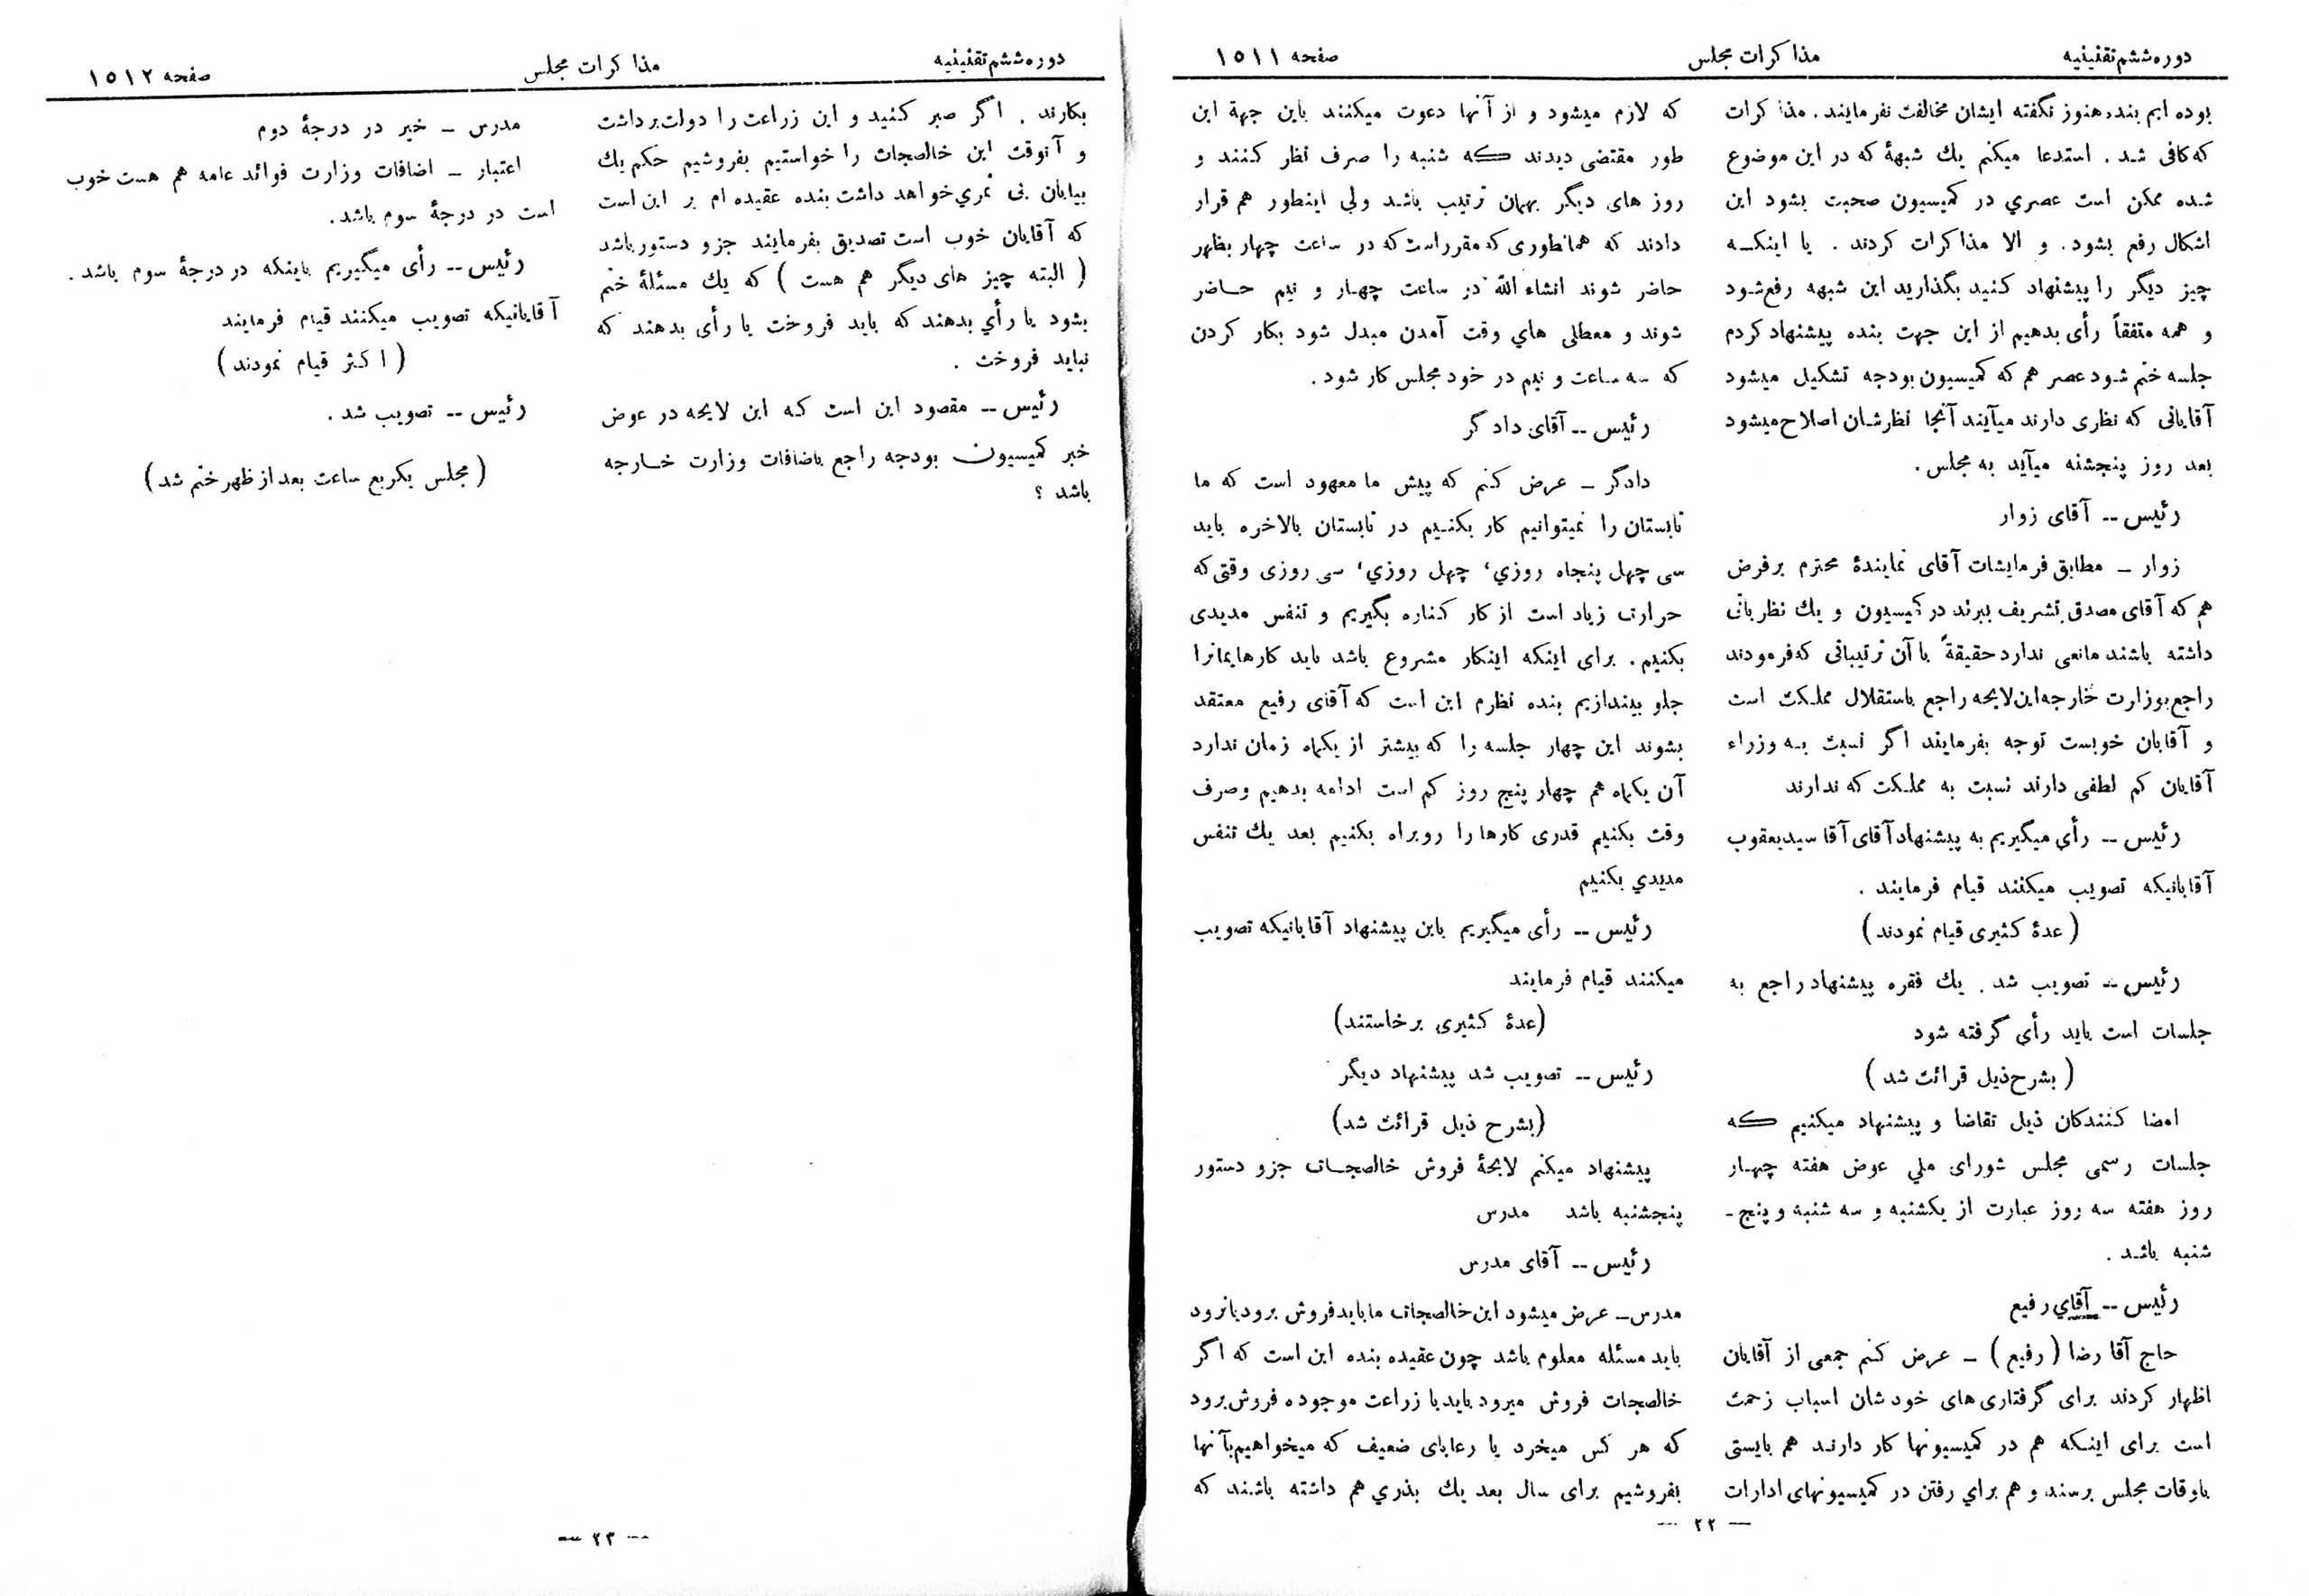 دوره ششم تقنینیه
مذاکرات مجلس
صفحه ۱۵۱۱
بوده ایم بنده هنوز نگفته ایشان مخالفت نفرمایند . مذاکرات
که کافی شد . استدعا میکنم یك شبههٔ که در این موضوع
شده ممکن است عصري در کمیسیون صحبت بشود این
اشکال رفع بشود . و الا مذاکرات کردند . یا اینکه
چیز دیگر را پیشنهاد کنید بگذارید این شبهه رفع شود
و همه متفقاً رأی بدهیم از این جهت بنده پیشنهاد کردم
جلسه ختم شود عصر هم که کمیسیون بودجه تشکیل میشود
آقایانی که نظری دارند میآیند آنجا نظرشان اصلاح میشود
بعد روز پنجشنه میآید به مجلس .
رئیس -- آقای زوار
زوار - مطابق فرمایشات آقای نمایندهٔ محترم برفرض
هم که آقای مصدق تشریف ببرند در کمیسیون و یك نظریاتی
داشته باشند مانعی ندارد حقیقةً با آن ترتیباتی که فرمودند
راجع بوزارت خارجه این لایحه راجع باستقلال مملکت است
و آقایان خوبست توجه بفرمایند اگر نسبت به وزراء
آقایان کم لطفی دارند نسبت به مملکت که ندارند
رئیس -- رأي میگیریم به پیشنهاد آقای آقا سیدیعقوب
آقایانیکه تصویب میکنند قیام فرمایند .
(عدهٔ کثیری قیام نمودند)
رئیس -- تصویب شد . یك فقره پیشنهاد راجع به
جلسات است باید رأی گرفته شود
(بشرح ذیل قرائت شد)
امضا کنندکان ذیل تقاضا و پیشنهاد میکنیم که
جلسات رسمی مجلس شورای ملي عوض هفته چهار
روز هفته سه روز عبارت از یکشنبه و سه شنبه و پنج -
شنبه باشد .
رئیس -- آقاي رفیع
حاج آقا رضا (رفیع) - عرض کنم جمعی از آقایان
اظهار کردند برای گرفتاری های خودشان اسباب زحمت
است برای اینکه هم در کمیسیونها کار دارند هم بایستی
باوقات مجلس برسند و هم براي رفتن در کمیسیونهای ادارات
که لازم میشود و از آنها دعوت میکنند باین جهة این
طور مقتضی دیدند که شنبه را صرف نظر کنند و
روز های دیگر بهمان ترتیب باشد ولی اینطور هم قرار
دادند که همانطوری که مقرر است که در ساعت چهار بظهر
حاضر شوند انشاء الله در ساعت چهار و نیم حاضر
شوند و معطلی هاي وقت آمدن مبدل شود بکار کردن
که سه ساعت و نیم در خود مجلس کار شود .
رئیس -- آقای دادگر
دادگر - عرض کنم که پیش ما معهود است که ما
تابستان را نمیتوانیم کار بکنیم در تابستان بالاخره باید
سی چهل پنجاه روزي، چهل روزي، سی روزی وقتی که
حرارت زیاد است از کار کناره بگیریم و تنفس مدیدی
بکنیم . برای اینکه اینکار مشروع باشد باید کارهایمانرا
جلو بیندازیم بنده نظرم این است که آقای رفیع معتقد
بشوند این چهار جلسه را که بیشتر از یکماه زمان ندارد
آن یکماه هم چهار پنج روز کم است ادامه بدهیم وصرف
وقت بکنیم قدری کارها را روبراه بکنیم بعد یك تنفس
مدیدي بکنیم
رئیس -- رأی میگیریم باین پیشنهاد آقایانیکه تصویب
میکنند قیام فرمایند
(عدهٔ کثیری برخاستند)
رئیس -- تصویب شد پیشنهاد دیگر
(بشرح ذیل قرائت شد)
پیشنهاد میکنم لایحهٔ فروش خالصجات جزو دستور
پنجشنبه باشد مدرس
رئیس -- آقای مدرس
مدرس - عرض میشود این خالصجات ما باید فروش برود یا نرود
باید مسئله معلوم باشد چون عقیده بنده این است که اگر
خالصجات فروش میرود باید با زراعت موجوده فروش برود
که هر کس میخرد یا رعایای ضعیف که میخواهیم بآنها
بفروشیم برای سال بعد یك بذري هم داشته باشند که
— ۲۲ —
دوره ششم تقنینیه
مذاکرات مجلس
صفحه ۱۵۱۲
بکارند . اگر صبر کنید و این زراعت را دولت برداشت
و آنوقت این خالصجات را خواستیم بفروشیم حکم یك
بیابان بی ثمري خواهد داشت بنده عقیده ام بر این است
که آقایان خوب است تصدیق بفرمایند جزو دستور باشد
(البته چیز های دیگر هم هست) که یك مسئلهٔ ختم
بشود یا رأي بدهند که باید فروخت یا رأی بدهند که
نباید فروخت .
رئیس -- مقصود این است که این لایحه در عوض
خبر کمیسیون بودجه راجع باضافات وزارت خارجه
باشد ؟
مدرس - خیر در درجهٔ دوم
اعتبار - اضافات وزارت فوائد عامه هم هست خوب
است در درجهٔ سوم باشد .
رئیس -- رأی میگیریم باینکه در درجهٔ سوم باشد .
آقایانیکه تصویب میکنند قیام فرمایند
(اکثر قیام نمودند)
رئیس -- تصویب شد .
(مجلس یکربع ساعت بعد از ظهر ختم شد)
— ۲۳ —